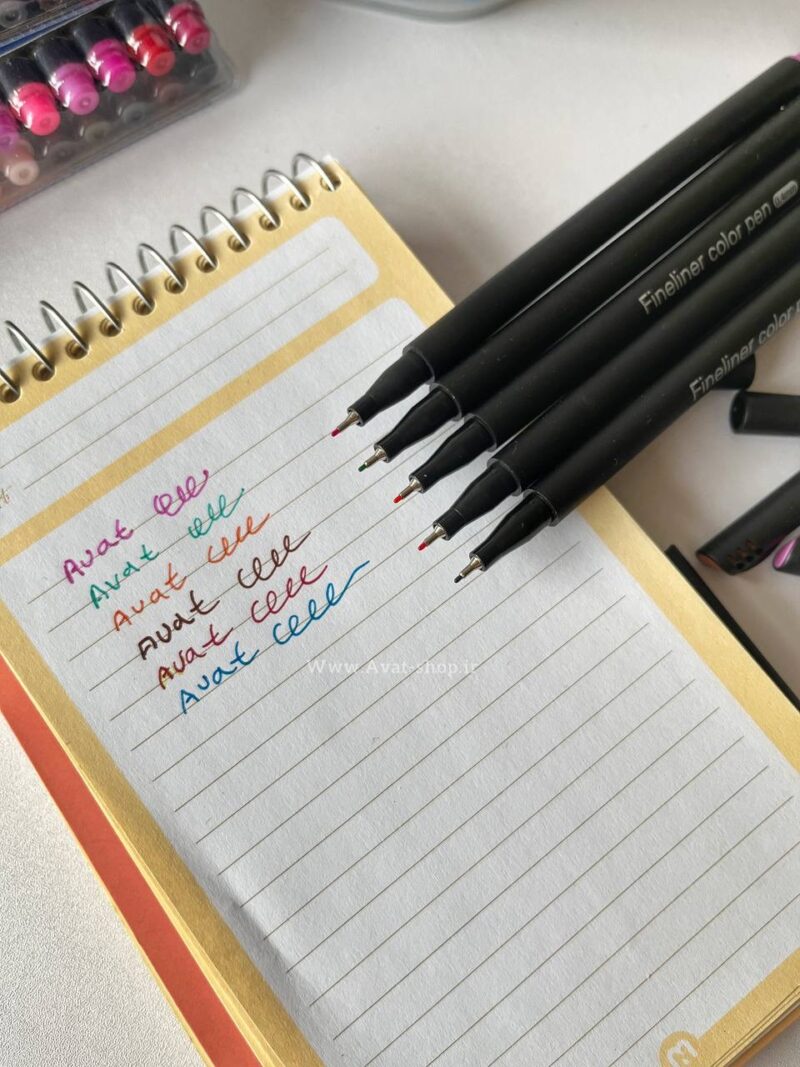 Fineliner color pen
Fineliner color
Avat
Avat
Avat
Avat
Avat
Avat
Www.Avat-shop.ir